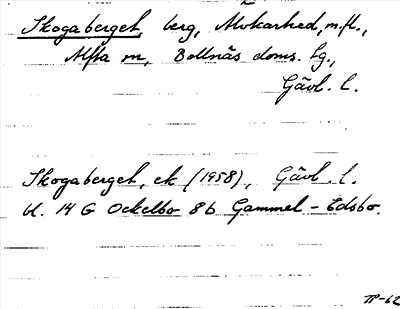 Skogaberget, berg, Mokarhed, m.fl.,
Alfta sn, Bollnäs doms. tg.,
Gävl. l.
Skogaberget, ek (1958), Gävl. l.
bl. 14 G Ockelbo 8b Gammel-Edsbo.
TP-62